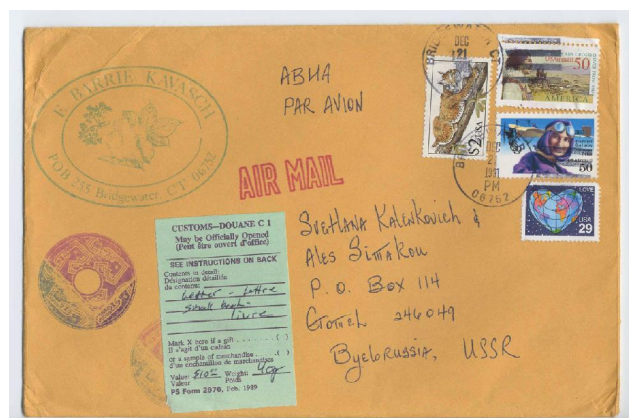 E. BARRIE KAVASCH
POB 255 Bridgewater, CT 06752
АВИА
PAR AVION
AIR MAIL
DEC
21
BRIDGEWATER CT
$2 USA
50
AMERICA
DEC
21
1991
PM
06752
50
LOVE
USA
29
CUSTOMS—DOUANE C 1
May be Officially Opened
(Peut être ouvert d'office)
SEE INSTRUCTIONS ON BACK
Contents in detail:
Désignation détaillée
du contenu:
Letter - Lettre
small book -
livre
Mark X here if a gift ( )
Il s'agit d'un cadeau
or a sample of merchandise ( )
d'un échantillon de marchandises
Value: Weight:
Valeur Poids
PS Form 2976, Feb. 1989
Svetlana Kalenkovich &
Ales Simakou
P. O. Box 114
Gomel 246049
Byelorussia, USSR